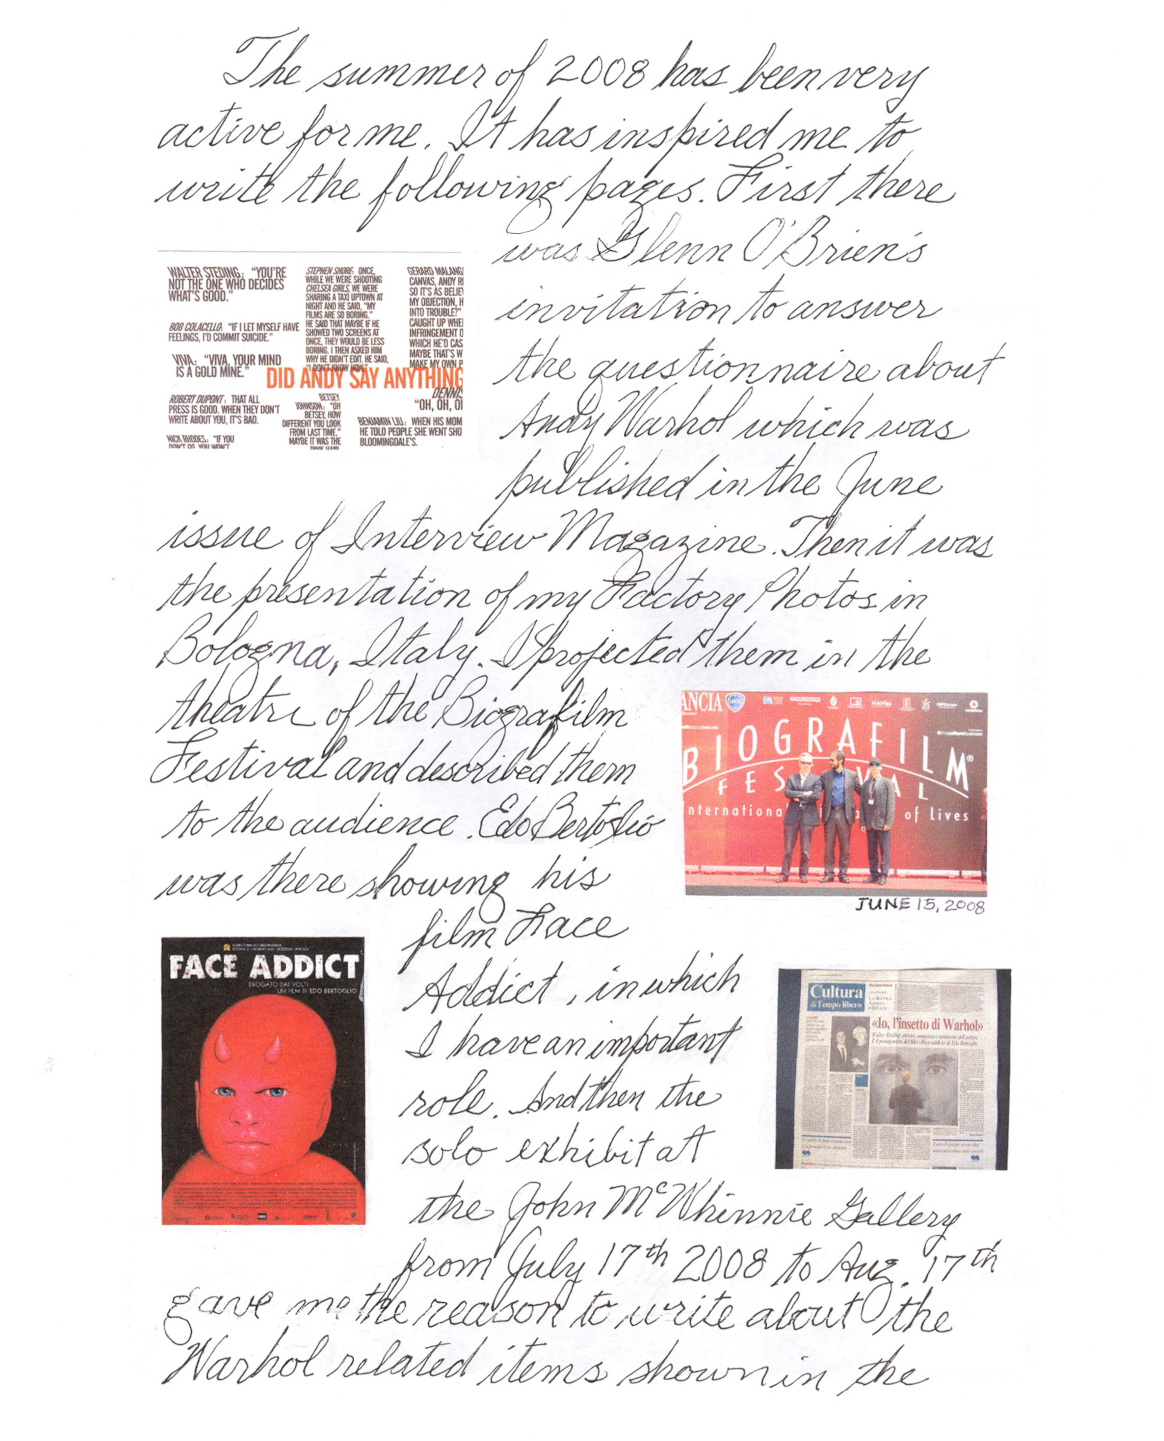 The summer of 2008 has been very
active for me. It has inspired me to
write the following pages. First there
was Glenn O'Brien's
invitation to answer
the questionnaire about
Andy Warhol which was
published in the June
WALTER STEDING: "YOU'RE
NOT THE ONE WHO DECIDES
WHAT'S GOOD."
BOB COLACELLO: "IF I LET MYSELF HAVE
FEELINGS, I'D COMMIT SUICIDE."
VIVA: "VIVA, YOUR MIND
IS A GOLD MINE."
ROBERT DUPONT: THAT ALL
PRESS IS GOOD. WHEN THEY DON'T
WRITE ABOUT YOU, IT'S BAD.
NICK RHODES: "IF YOU
DON'T GO, YOU WON'T
STEPHEN SHORE: ONCE,
WHILE WE WERE SHOOTING
CHELSEA GIRLS, WE WERE
SHARING A TAXI UPTOWN AT
NIGHT AND HE SAID, "MY
FILMS ARE SO BORING."
HE SAID THAT MAYBE IF HE
SHOWED TWO SCREENS AT
ONCE, THEY WOULD BE LESS
BORING. I THEN ASKED HIM
WHY HE DIDN'T EDIT. HE SAID,
"I DON'T KNOW HOW."
GERARD MALANG
CANVAS, ANDY RI
SO IT'S AS BELIE
MY OBJECTION, H
INTO TROUBLE?"
CAUGHT UP WHE
INFRINGEMENT O
WHICH HE'D CAS
MAYBE THAT'S W
MAKE MY OWN P
DID ANDY SAY ANYTHING
DENNIS
"OH, OH, OI
BETSEY
JOHNSON: "OH
BETSEY, HOW
DIFFERENT YOU LOOK
FROM LAST TIME."
MAYBE IT WAS THE
BENJAMIN LIU: WHEN HIS MOM
HE TOLD PEOPLE SHE WENT SHO
BLOOMINGDALE'S.
issue of Interview Magazine. Then it was
the presentation of my Factory Photos in
Bologna, Italy. I projected them in the
theatre of the Biografilm
Festival and described them
to the audience. Edo Bertoglio
was there showing his
ANCIA
BIOGRAFILM
FESTIVAL
nternationa
of Lives
JUNE 15, 2008
film Face
Addict, in which
I have an important
role. And then the
solo exhibit at
FACE ADDICT
DROGATO DAI VOLTI
UN FILM DI EDO BERTOGLIO
Cultura
& Tempo libero
«Io, l'insetto di Warhol»
the John McWhinnie Gallery
from July 17th 2008 to Aug. 17th
gave me the reason to write about the
Warhol related items shown in the